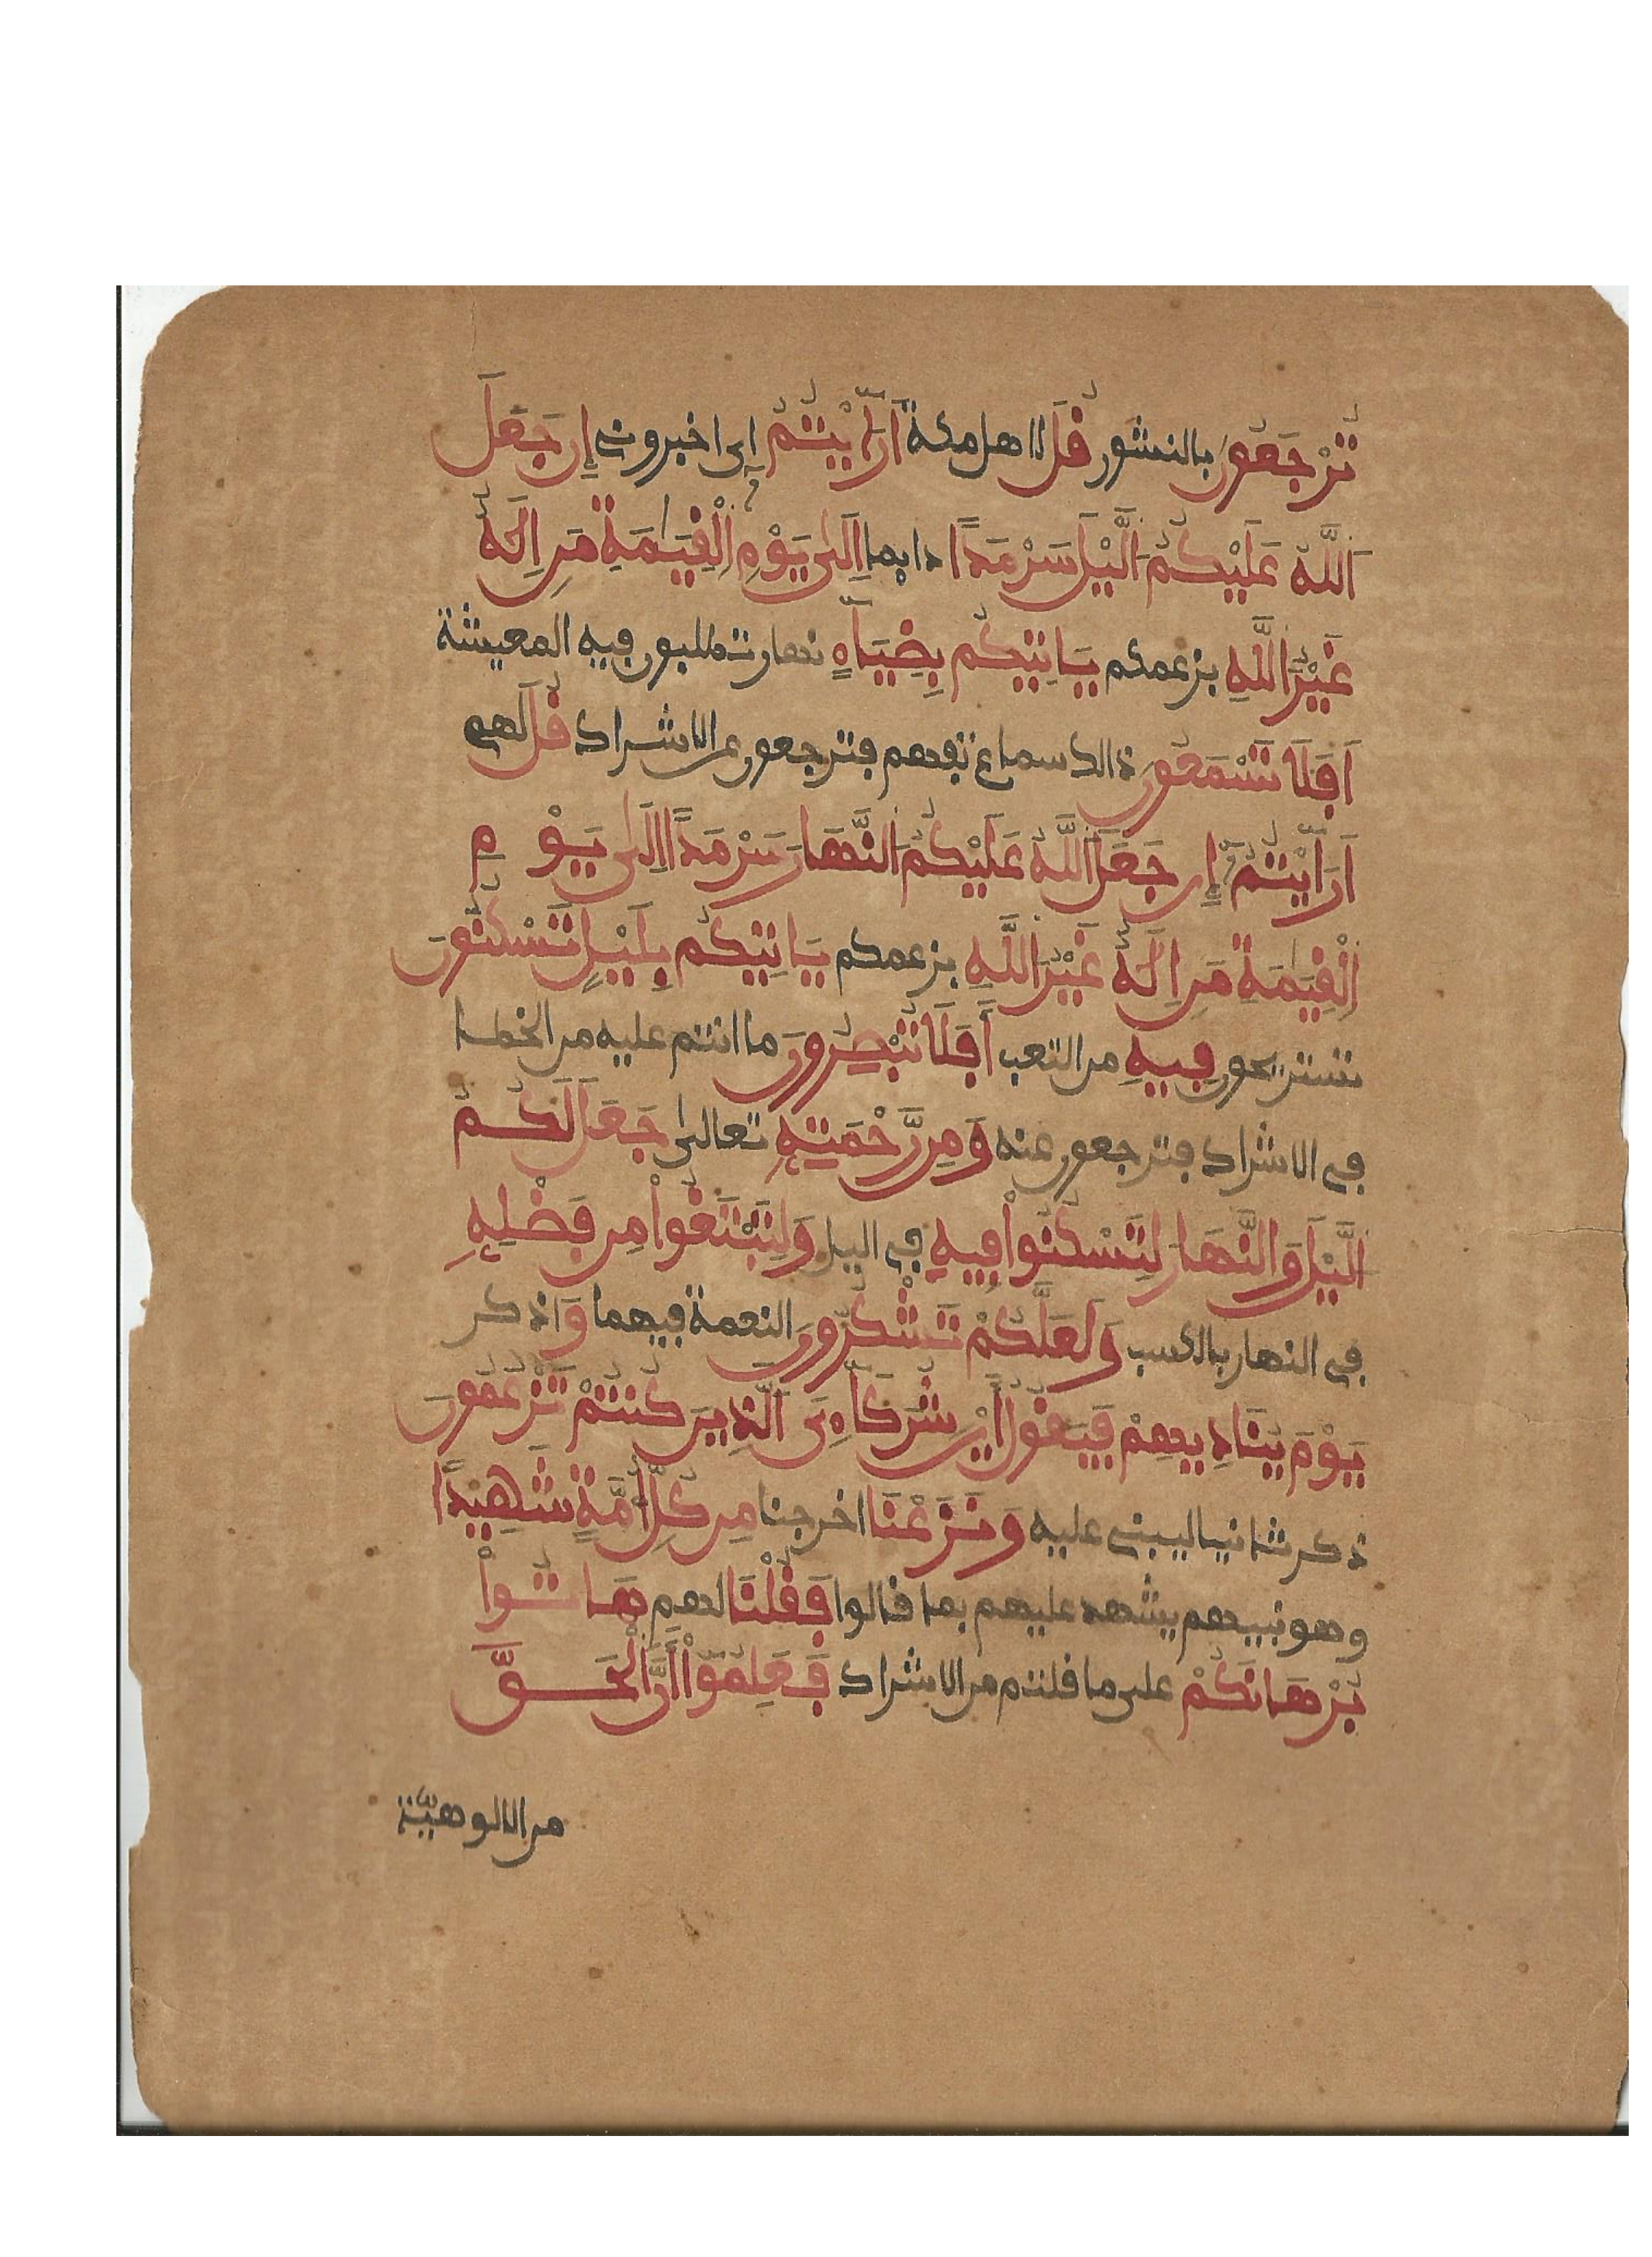 تُرْجَعُونَ بالنشور قُلْ لاهل مكة أَرَآيْتُمُ اى اخبرونى إِن جَعَلَ
اَللَّهُ عَلَيْكُمُ اَلَّيْلَ سَرْمَدًا دايما اِلَىٰ يَوْمِ اِلْقِيَٰمَةِ مَنِ اِلَٰهٌ
غَيْرُ اَللَّهِ بزعمكم يَاتِيكُم بِضِيَآءٍ نهار تطلبون فيه المعيشة
اَفَلَا تَسْمَعُونَ ذالك سماع تفهم فترجعون عن الاشراك قُلْ لهم
اَرَآيْتُمُ إِن جَعَلَ اَللَّهُ عَلَيْكُمُ اَلنَّهَارَ سَرْمَدًا اِلَىٰ يَوْمِ
اِلْقِيَٰمَةِ مَنِ اِلَٰهٌ غَيْرُ اَللَّهِ بزعمكم يَاتِيكُم بِلَيْلٍ تَسْكُنُونَ
تستريحون فِيهِ من التعب أَفَلَا تُبْصِرُونَ ما انتم عليه من الخطا
فى الاشراك فترجعون عنه وَمِن رَّحْمَتِهِ تعالىٰ جَعَلَ لَكُمُ
اَلَّيْلَ وَالنَّهَارَ لِتَسْكُنُواْ فِيهِ فى اليل وَلِتَبْتَغُواْ مِن فَضْلِهِ
فى النهار بالكسب وَلَعَلَّكُمْ تَشْكُرُونَ النعمة فيهما وَ اذكر
يَوْمَ يُنَادِيهِمْ فَيَقُولُ أَيْنَ شُرَكَآءِىَ اَلَّذِينَ كُنتُمْ تَزْعُمُونَ
ذكر ثانيا ليبنى عليه وَنَزَعْنَا اخرجنا مِن كُلِّ أُمَّةٍ شَهِيدًا
وهو نبيهم يشهد عليهم بما قالوا فَقُلْنَا لهم هَاتُواْ
بُرْهَانَكُمْ علىٰ ما قلتم من الاشراك فَعَلِمُوٓاْ أَنَّ اَلْحَقَّ
من الالوهيّة